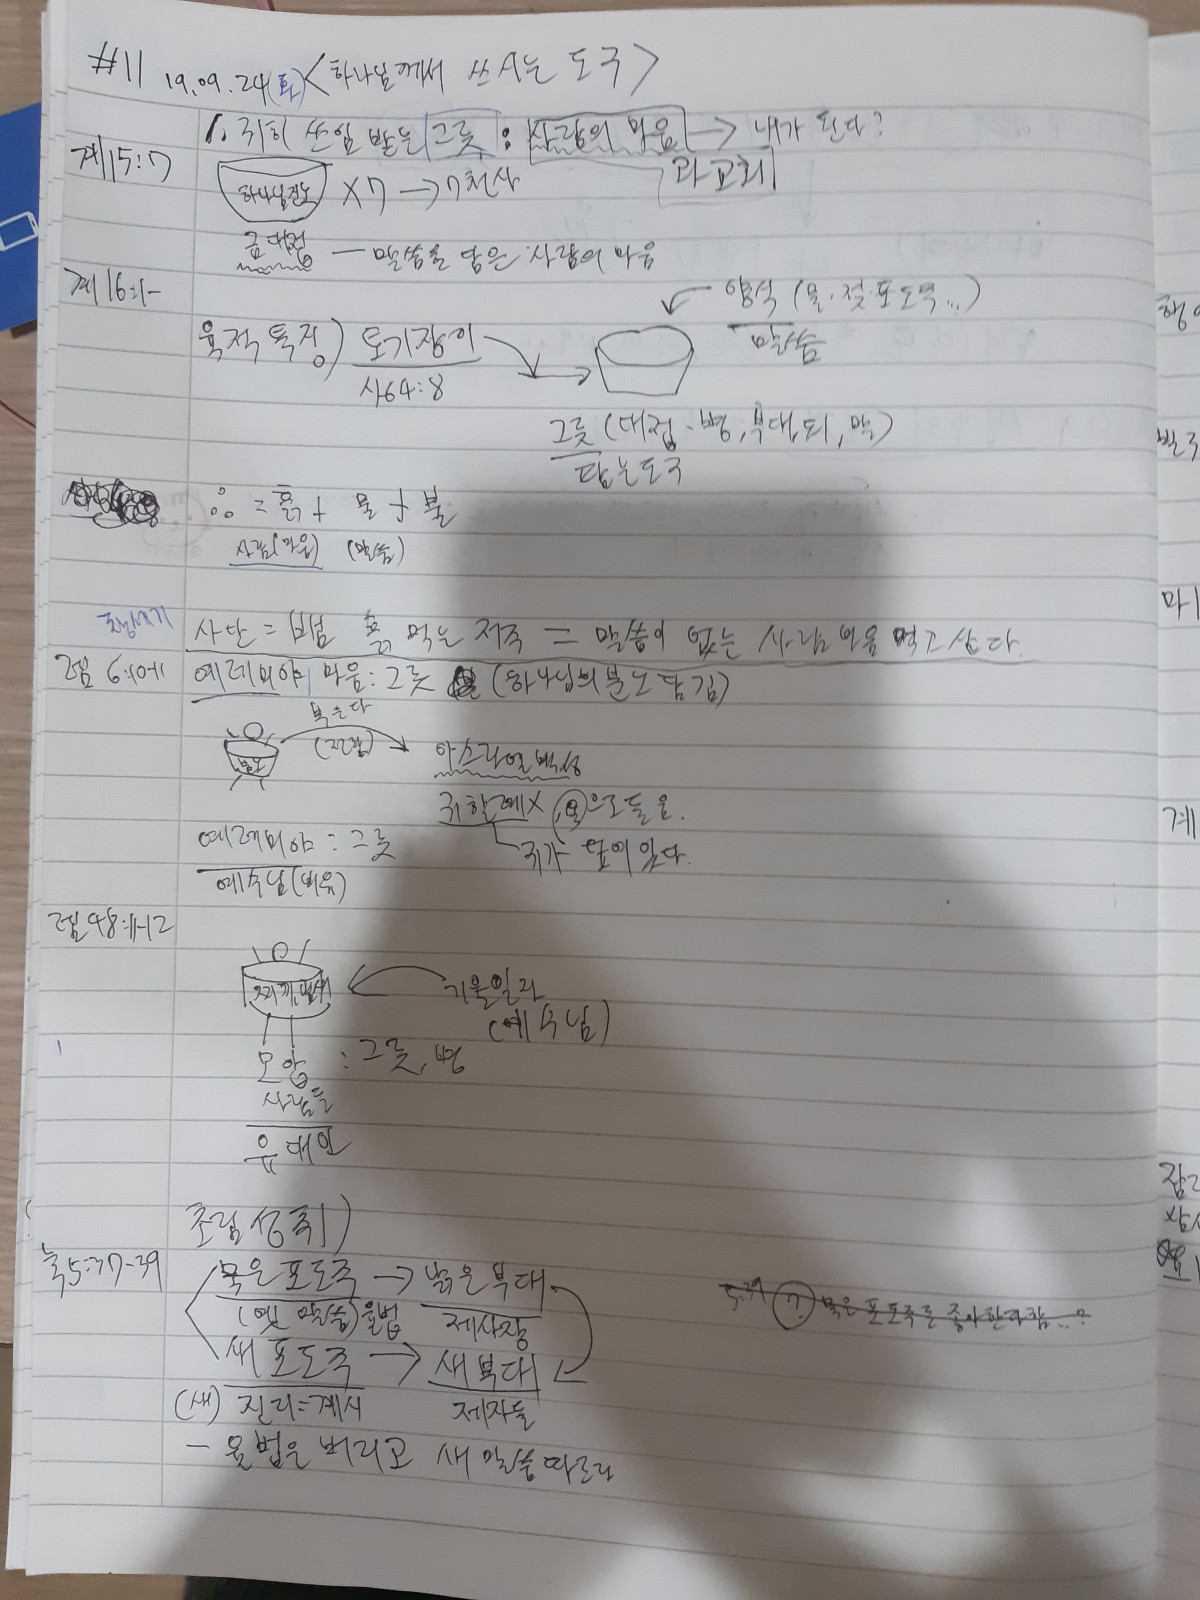 #11 19.09.24(화) <하나님께서 쓰시는 도구>
계15:7
1. 귀히 쓰임 받는 그릇 : 사람의 마음 → 내가 된다?
과 교회
하나님진노 X7 → 7천사
금대접 — 말씀을 담은 사람의 마음
계16:1-
육적 특징) 토기장이
사64:8
양식 (물·젖·포도주...)
말씀
그릇 (대접·병, 부대, 되, 말)
담는도구
∴ = 흙 + 물 + 불
사람(마음) (말씀)
창세기
사단 = 뱀 흙 먹는 저주 = 말씀이 없는 사람 마음 먹고 산다.
렘 6:10-11
예레미야 마음 : 그릇 (하나님의 분노 담김)
붓는다
분노
이스라엘백성
귀할례X, 육으로 들음.
귀가 닫혀 있다.
예레미야 : 그릇
예수님(비유)
렘48:11-12
찌끼
기울일자
(예수님)
모압 : 그릇, 병
사람들
유대인
초림 성취)
눅5:37-39
묵은 포도주 → 낡은 부대
(옛 말씀) 율법 제사장
새 포도주 → 새 부대
(새) 진리=계시 제자들
5:39 ? 묵은 포도주를 좋아한다함...?
— 율법은 버리고 새 말씀 따르라
행
빌
마
계
잠